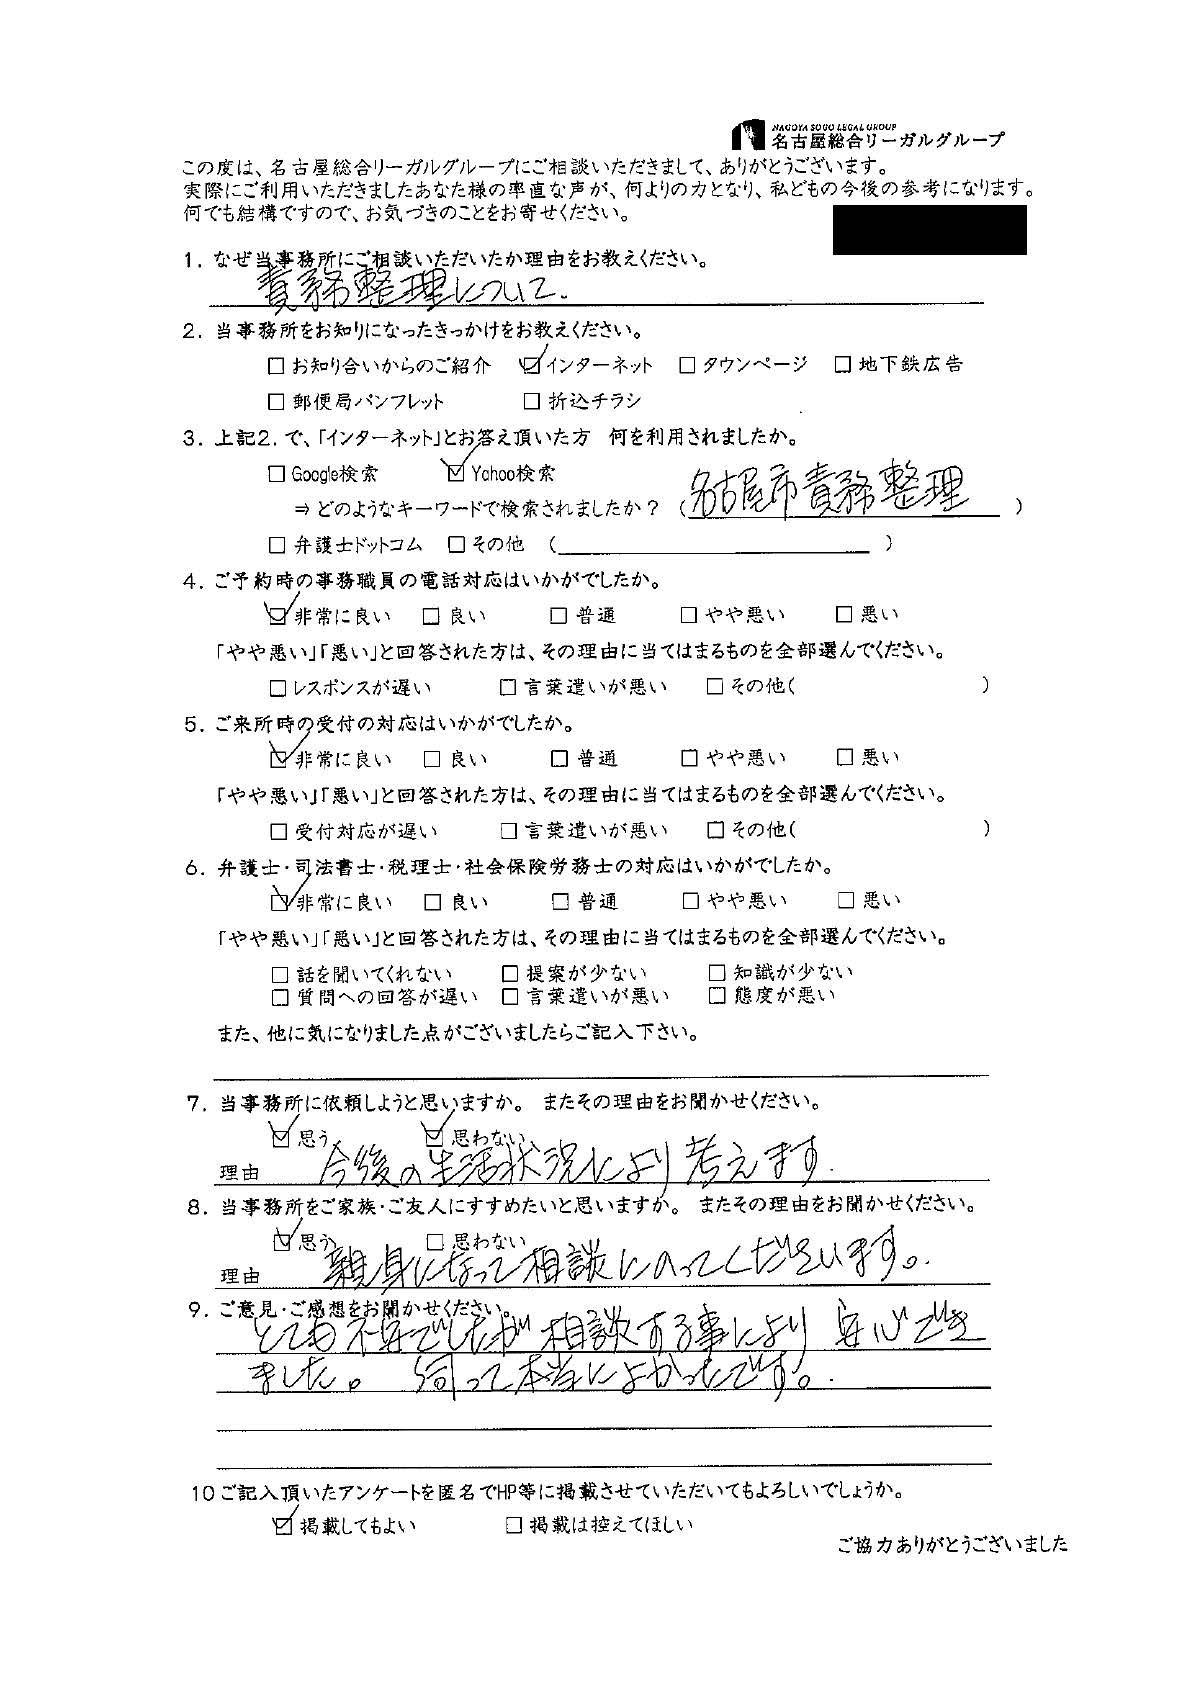 NAGOYA SOGO LEGAL GROUP
名古屋総合リーガルグループ
この度は、名古屋総合リーガルグループにご相談いただきまして、ありがとうございます。
実際にご利用いただきましたあなた様の率直な声が、何よりの力となり、私どもの今後の参考になります。
何でも結構ですので、お気づきのことをお寄せください。
1. なぜ当事務所にご相談いただいたか理由をお教えください。
責務整理について.
2. 当事務所をお知りになったきっかけをお教えください。
□ お知り合いからのご紹介 ☑ インターネット □ タウンページ □ 地下鉄広告
□ 郵便局パンフレット □ 折込チラシ
3. 上記2.で、「インターネット」とお答え頂いた方 何を利用されましたか。
□ Google検索 ☑ Yahoo検索
⇒ どのようなキーワードで検索されましたか？ (名古屋市責務整理)
□ 弁護士ドットコム □ その他 ( )
4. ご予約時の事務職員の電話対応はいかがでしたか。
☑ 非常に良い □ 良い □ 普通 □ やや悪い □ 悪い
「やや悪い」「悪い」と回答された方は、その理由に当てはまるものを全部選んでください。
□ レスポンスが遅い □ 言葉遣いが悪い □ その他( )
5. ご来所時の受付の対応はいかがでしたか。
☑ 非常に良い □ 良い □ 普通 □ やや悪い □ 悪い
「やや悪い」「悪い」と回答された方は、その理由に当てはまるものを全部選んでください。
□ 受付対応が遅い □ 言葉遣いが悪い □ その他( )
6. 弁護士・司法書士・税理士・社会保険労務士の対応はいかがでしたか。
☑ 非常に良い □ 良い □ 普通 □ やや悪い □ 悪い
「やや悪い」「悪い」と回答された方は、その理由に当てはまるものを全部選んでください。
□ 話を聞いてくれない □ 提案が少ない □ 知識が少ない
□ 質問への回答が遅い □ 言葉遣いが悪い □ 態度が悪い
また、他に気になりました点がございましたらご記入下さい。
7. 当事務所に依頼しようと思いますか。 またその理由をお聞かせください。
☑ 思う ☑ 思わない
理由 今後の生活状況により考えます.
8. 当事務所をご家族・ご友人にすすめたいと思いますか。 またその理由をお聞かせください。
☑ 思う □ 思わない
理由 親身になって相談にのってくださいます。.
9. ご意見・ご感想をお聞かせください。
とても不安でしたが相談する事により 安心でき
ました。 伺って本当によかったです。.
10 ご記入頂いたアンケートを匿名でHP等に掲載させていただいてもよろしいでしょうか。
☑ 掲載してもよい □ 掲載は控えてほしい
ご協力ありがとうございました